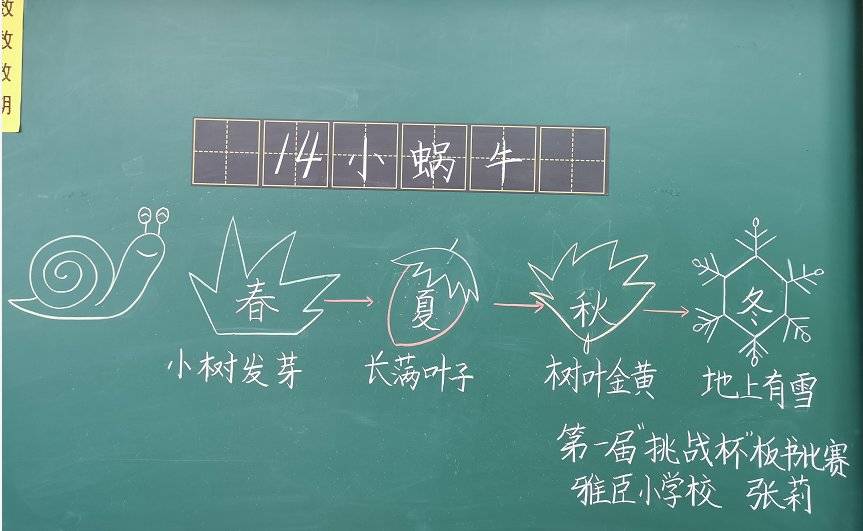 数
数
数
期
14小蜗牛
春
夏
秋
冬
小树发芽
长满叶子
树叶金黄
地上有雪
第一届"挑战杯"板书比赛
雅臣小学校 张莉